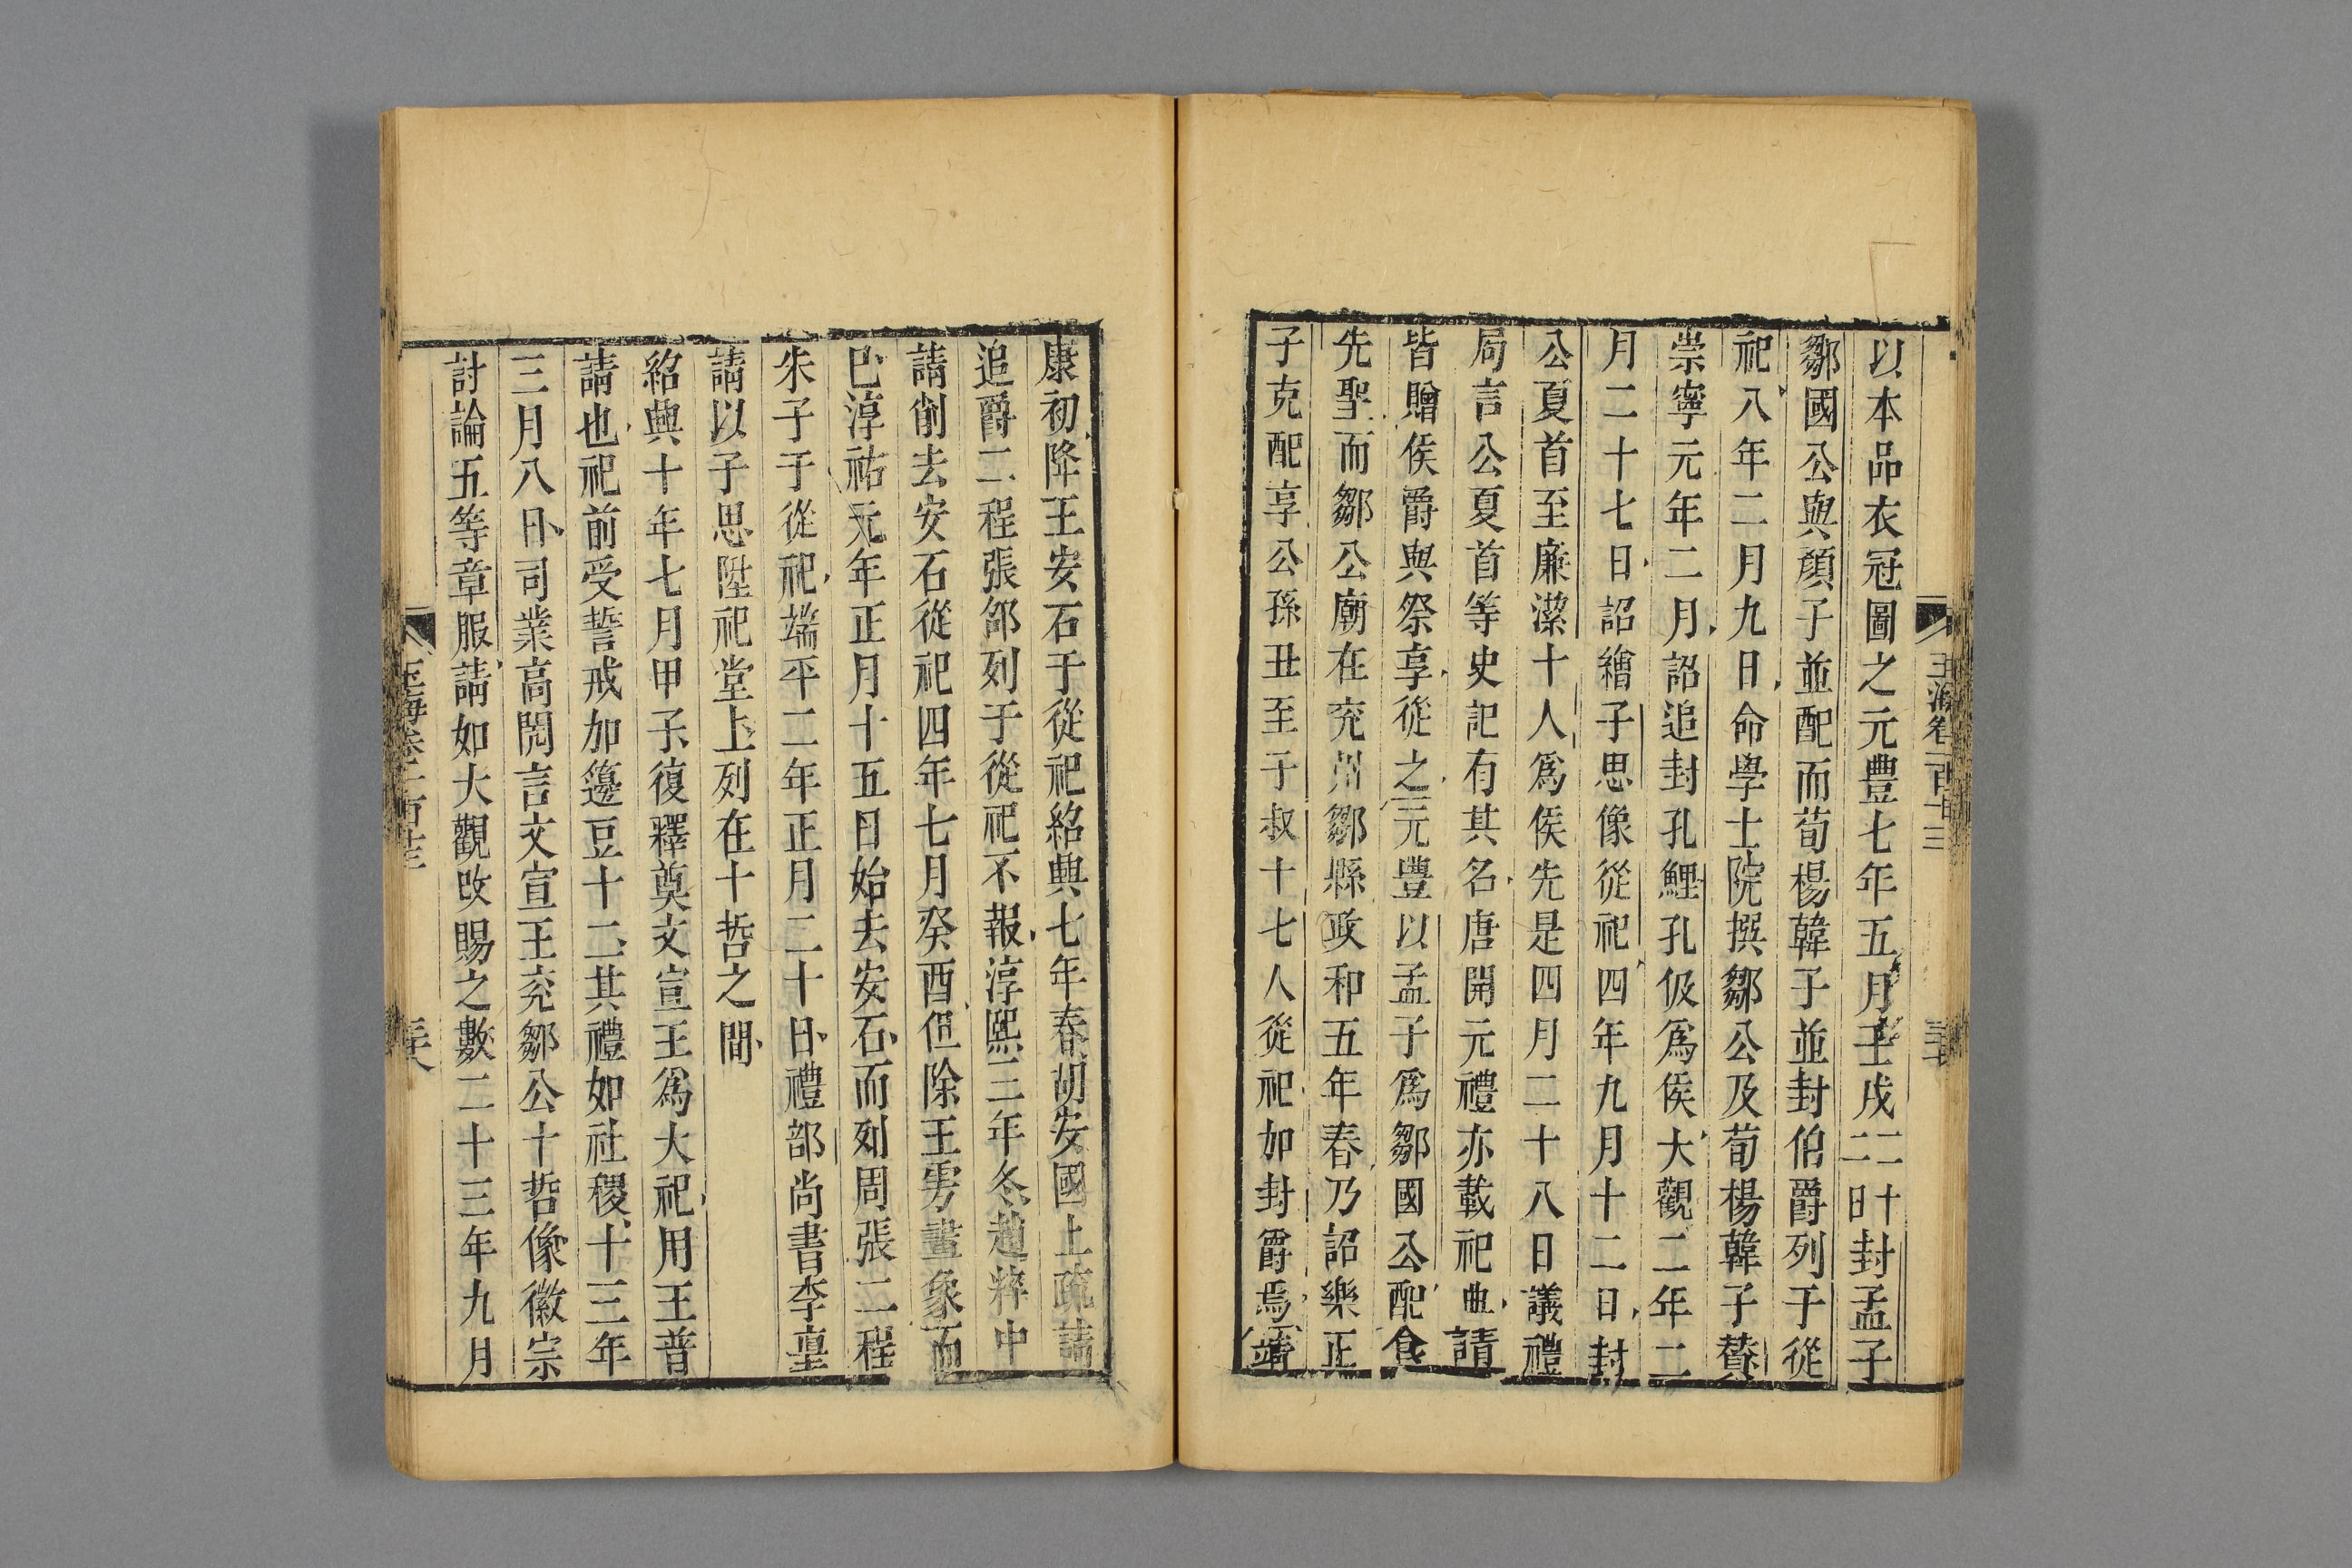 以本品衣冠圖之元豐七年五月壬戌二十二日封孟子
鄒國公與顏子並配而荀楊韓子並封伯爵列于從
祀八年二月九日命學士院撰鄒公及荀楊韓子贊
崇寧元年二月詔追封孔鯉孔伋爲侯大觀二年二
月二十七日詔繪子思像從祀四年九月十二日封
公夏首至廉潔十人爲侯先是四月二十八日議禮
局言公夏首等史記有其名唐開元禮亦載祀典請
皆贈侯爵與祭享從之元豐以孟子爲鄒國公配食
先聖而鄒公廟在兖州鄒縣政和五年春乃詔樂正
子克配享公孫丑至子叔十七人從祀如封爵焉靖
康初降王安石于從祀紹興七年春胡安國上疏請
追爵二程張邵列于從祀不報淳熙三年冬趙粹中
請削去安石從祀四年七月癸酉但除王雱畫象而
已淳祐元年正月十五日始去安石而列周張二程
朱子于從祀端平二年正月二十日禮部尚書李𡌴
請以子思陞祀堂上列在十哲之間
紹興十年七月甲子復釋奠文宣王爲大祀用王普
請也祀前受誓戒加籩豆十二其禮如社稷十三年
三月八日司業高閌言文宣王兖鄒公十哲像徽宗
討論五等章服請如大觀改賜之數二十三年九月